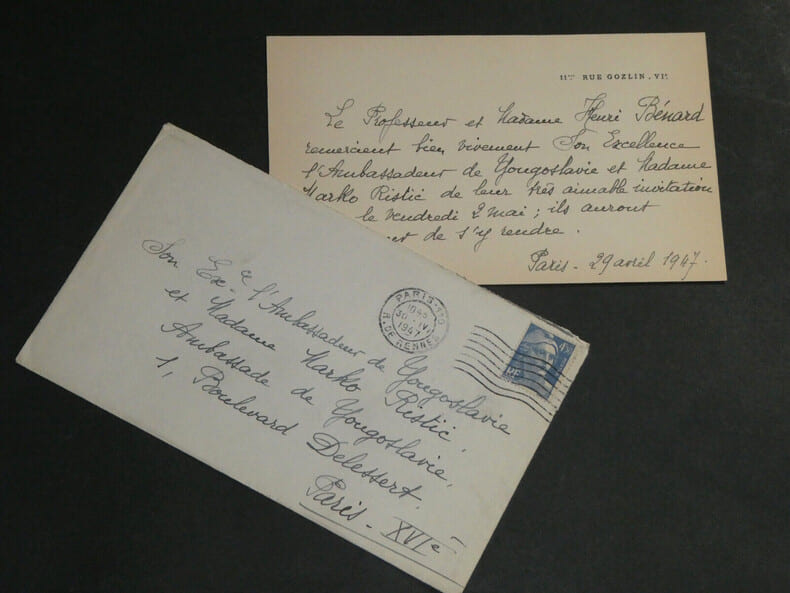 11bis RUE GOZLIN, VIe
Le Professeur et Madame Henri Bénard
remercient bien vivement Son Excellence
l'Ambassadeur de Yougoslavie et Madame
Marko Ristić de leur très aimable invitation
le vendredi 2 mai ; ils auront
de s'y rendre.
Paris - 29 avril 1947.
Son Exce l'Ambassadeur de Yougoslavie
et Madame Marko Ristić,
Ambassade de Yougoslavie,
1, Boulevard Delessert,
Paris - XVIe
PARIS-110
30 - IV
1947
R. DE RENNES
RF